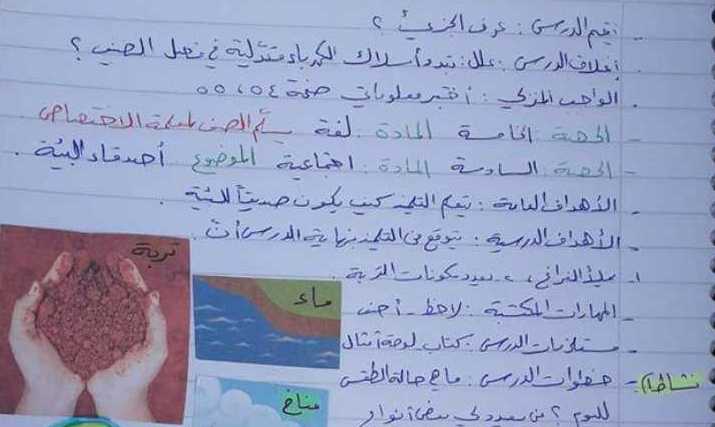 - تقيم الدرس : عرف الجزيء ؟
- إغلاق الدرس : علل: تبدو أسلاك الكهرباء متدلية في فصل الصيف ؟
- الواجب المنزلي : أختبر معلوماتي صفحة ٥٤، ٥٥
- الحصة الخامسة المادة: لغة يسلّم الصف لمعلمة الاختصاص
- الحصة: السادسة المادة: اجتماعية الموضوع أصدقاء البيئة.
- الأهداف العامة : يتعلم التلميذ كيف يكون صديقاً للبيئة.
- الأهداف الدرسية : يتوقع من التلميذ بنهاية الدرس أن
١- يملأ الفراغ، ٢- يعدد مكونات التربة
- المهارات المكتسبة : لاحظ - أصنف
- مستلزمات الدرس : كتاب لوحة أمثال
نشاط١- خطوات الدرس : ما هي حالة الطقس
لليوم ؟ من يعدد لي بعض أنواع
تربة
ماء
مناخ